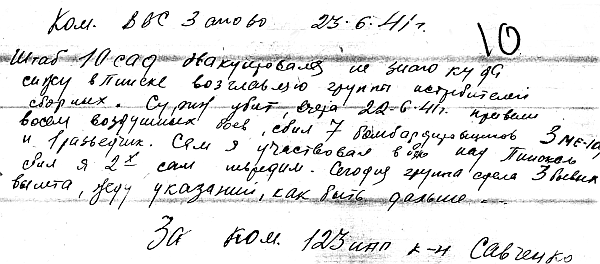 Ком. ВВС Запово 23.6.41 г.
10
Штаб 10 сад эвакуировался не знаю куда
сижу в Пинске возглавляю группу истребителей
сборных. Сурин убит, вчера 22-6-41 г. провели
восем воздушных боев, сбил 7 бомбардировщиков 3 МЕ-109
и 1 разведчик. Сам я участвовал в бою над Пинском
сбил я 2х сам невредим. Сегодня группа сдела 3 боевых
вылета, жду указаний, как быть дальше...
За ком. 123 иап к-н Савченко